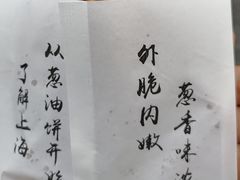 葱香味浓
外脆内嫩
从葱油饼开始
了解上海